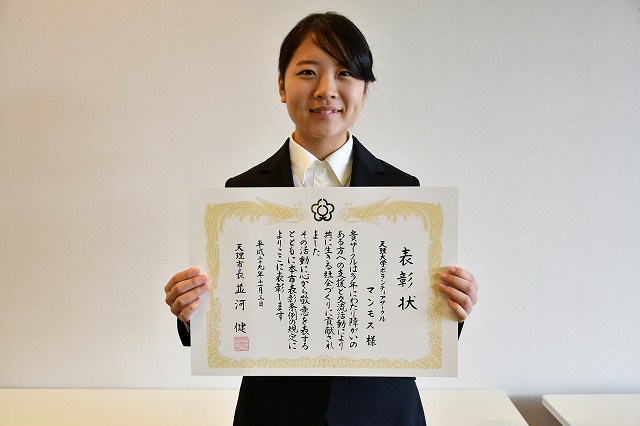 表彰状
天理大学ボランティアサークル
マンモス 様
貴サークルは多年にわたり障がいの
ある方への支援と交流活動により
共に生きる社会づくりに貢献され
ました
その活動に心から敬意を表する
とともに本市表彰条例の規定に
よりここに表彰します
平成二十九年十一月三日
天理市長 並河 健